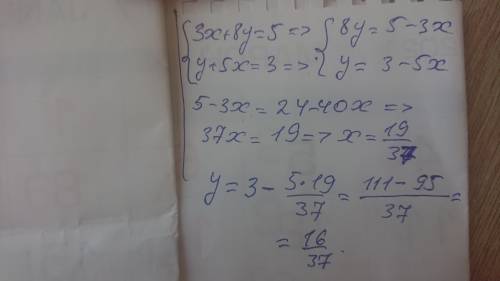 {3x+8y=5=> {8y=5-3x
{y+5x=3=> {y=3-5x
5-3x=24-40x=>
37x=19=>x=19/37
y=3-5·19/37=111-95/37=
=16/37.